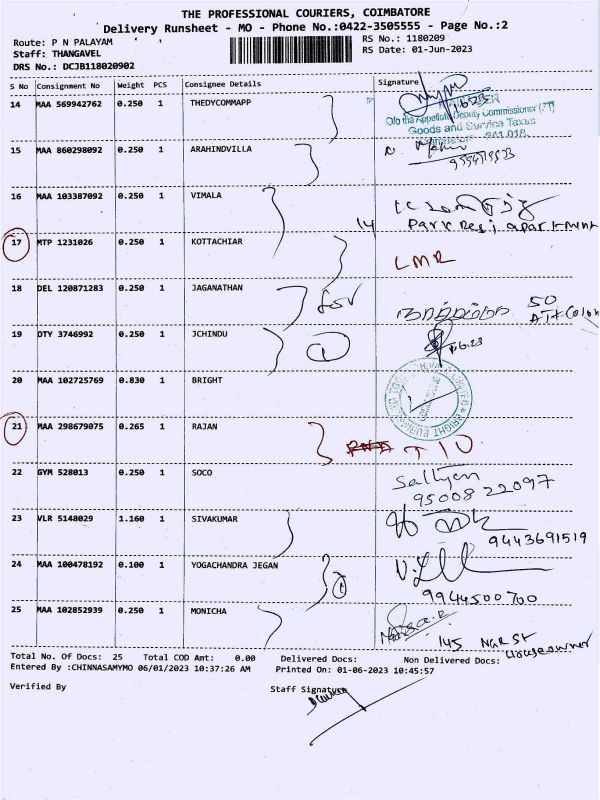 THE PROFESSIONAL COURIERS, COIMBATORE
Delivery Runsheet - MO - Phone No.:0422-3505555 - Page No.:2
Route: P N PALAYAM RS No.: 1180209
Staff: THANGAVEL RS Date: 01-Jun-2023
DRS No.: DCJB118020902
S No Consignment No Weight PCS Consignee Details Signature
14 MAA 569942762 0.250 1 THEDYCOMMAPP
O/o the Appellate Deputy Commissioner (ST)
Goods and Service Taxes
15 MAA 860298092 0.250 1 ARAHINDVILLA
16 MAA 103387092 0.250 1 VIMALA
14 Park Resi apartment
17 MTP 1231026 0.250 1 KOTTACHIAR LMR
18 DEL 120871283 0.250 1 JAGANATHAN 50
19 OTY 3746992 0.250 1 JCHINDU 1 1.6.23
20 MAA 102725769 0.830 1 BRIGHT
21 MAA 298679075 0.265 1 RAJAN
22 GYM 528013 0.250 1 SOCO
95008 22097
23 VLR 5148029 1.160 1 SIVAKUMAR
9443691519
24 MAA 100478192 0.100 1 YOGACHANDRA JEGAN
9944500700
25 MAA 102852939 0.250 1 MONICHA
145 NGR St
Houseowner
Total No. Of Docs: 25 Total COD Amt: 0.00 Delivered Docs: Non Delivered Docs:
Entered By :CHINNASAMYMO 06/01/2023 10:37:26 AM Printed On: 01-06-2023 10:45:57
Verified By Staff Signature